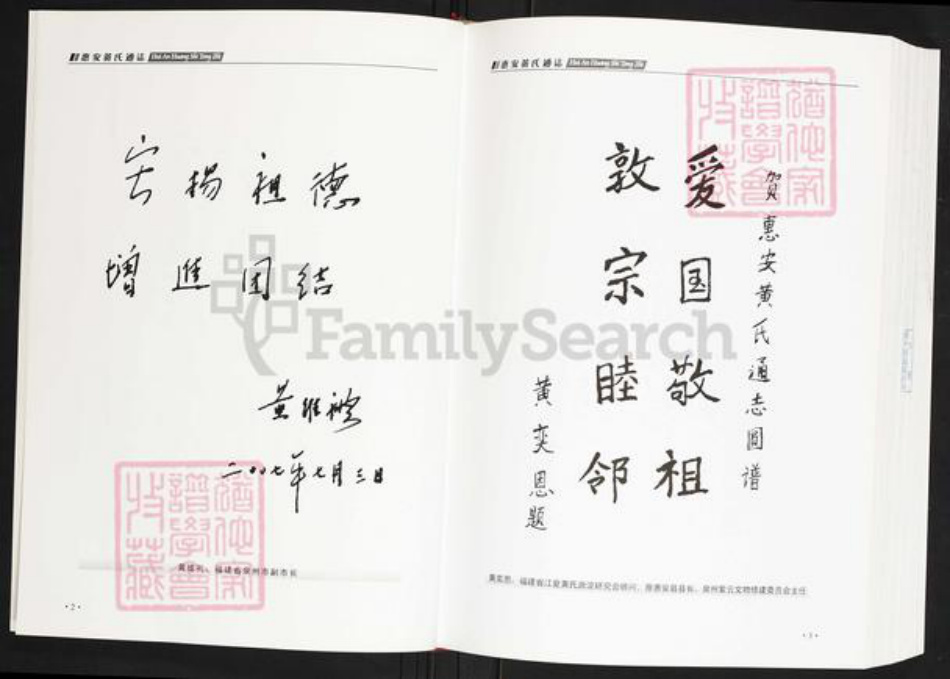 惠安黄氏通志 Hui An Huang Shi Tong Zhi
宏揚祖德
增進团结
黄维礼
二〇〇七年七月三日
黄维礼、福建省泉州市副市长
·2·
猶他家
譜學會
收藏
惠安黄氏通志 Hui An Huang Shi Tong Zhi
賀惠安黄氏通志圆谱
爱国敬祖
敦宗睦邻
黄奕恩题
福建省江夏黄氏源流研究会顾问、原惠安县县长、泉州紫云文物修建委员会主任
·3·
猶他家
譜學會
收藏
FamilySearch